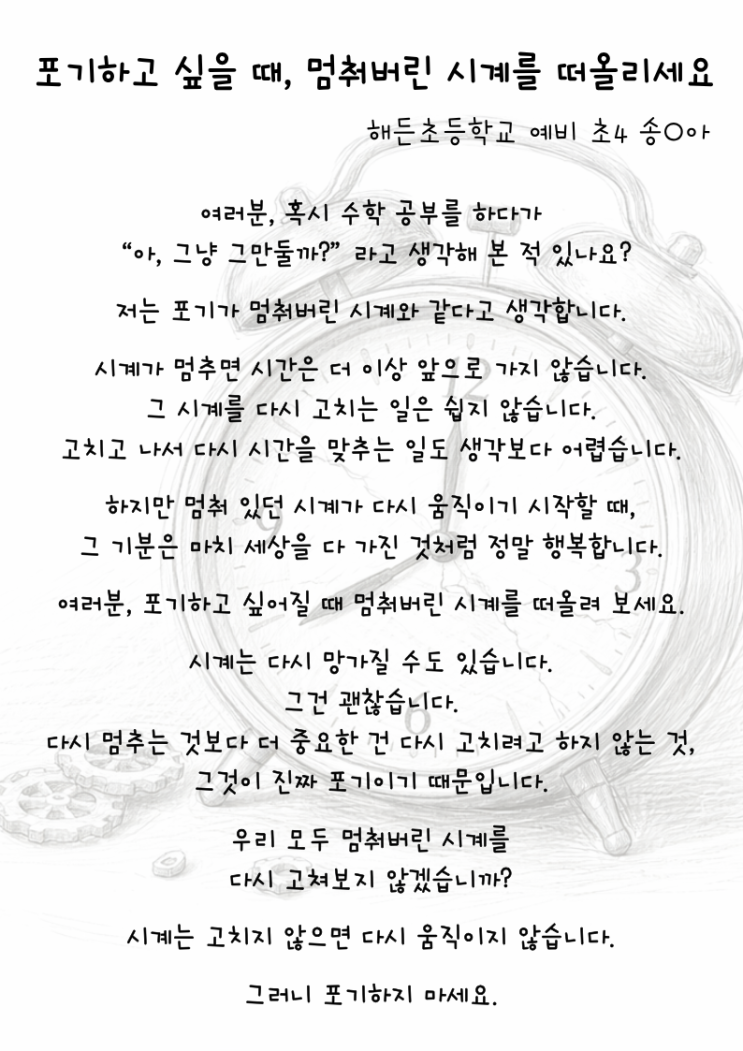 포기하고 싶을 때, 멈춰버린 시계를 떠올리세요
해든초등학교 예비 초4 송○아
여러분, 혹시 수학 공부를 하다가
“아, 그냥 그만둘까?” 라고 생각해 본 적 있나요?
저는 포기가 멈춰버린 시계와 같다고 생각합니다.
시계가 멈추면 시간은 더 이상 앞으로 가지 않습니다.
그 시계를 다시 고치는 일은 쉽지 않습니다.
고치고 나서 다시 시간을 맞추는 일도 생각보다 어렵습니다.
하지만 멈춰 있던 시계가 다시 움직이기 시작할 때,
그 기분은 마치 세상을 다 가진 것처럼 정말 행복합니다.
여러분, 포기하고 싶어질 때 멈춰버린 시계를 떠올려 보세요.
시계는 다시 망가질 수도 있습니다.
그건 괜찮습니다.
다시 멈추는 것보다 더 중요한 건 다시 고치려고 하지 않는 것,
그것이 진짜 포기이기 때문입니다.
우리 모두 멈춰버린 시계를
다시 고쳐보지 않겠습니까?
시계는 고치지 않으면 다시 움직이지 않습니다.
그러니 포기하지 마세요.
12
9
3
6